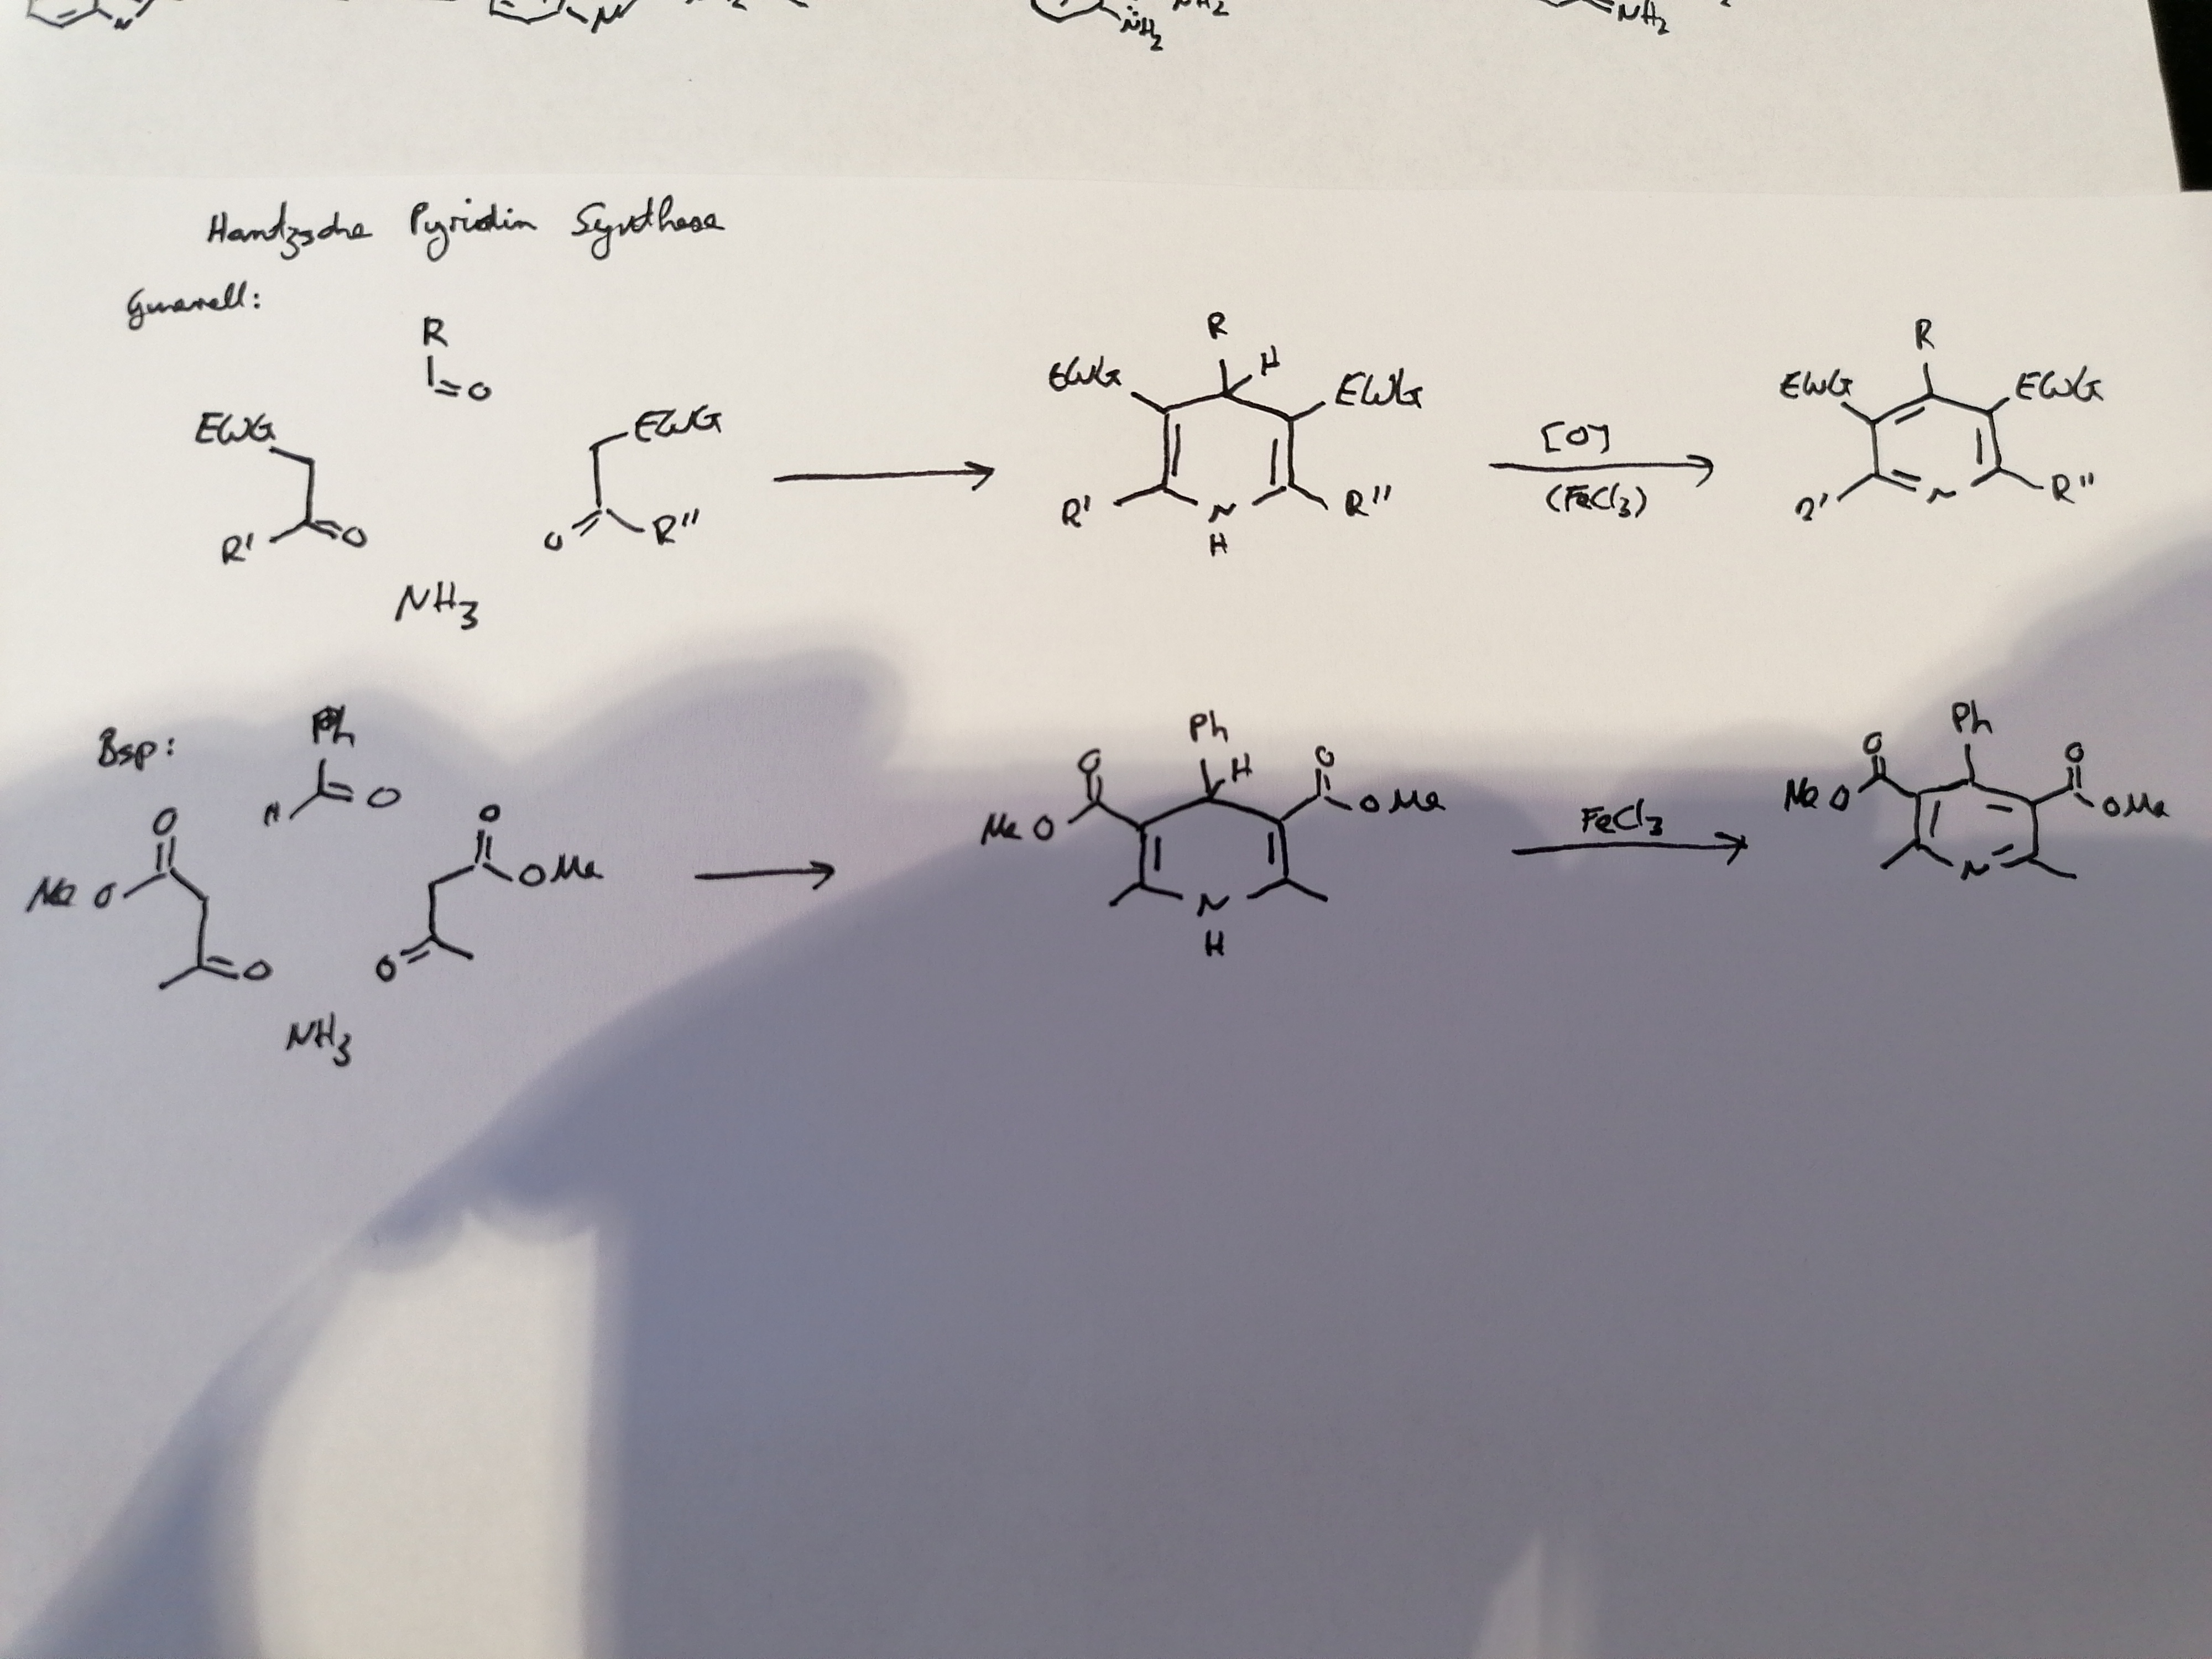 N N NH2 NH2 NH2
Hantzsche Pyridin Synthese
Generell:
R
O
EWG EWG
R' O O R"
NH3
R H
EWG EWG
R' N R"
H
[O]
(FeCl3)
R
EWG EWG
R' N R"
Bsp:
Ph
H O
O O
MeO OMe
O O
NH3
Ph
O H O
MeO OMe
N
H
FeCl3
Ph
O O
MeO OMe
N